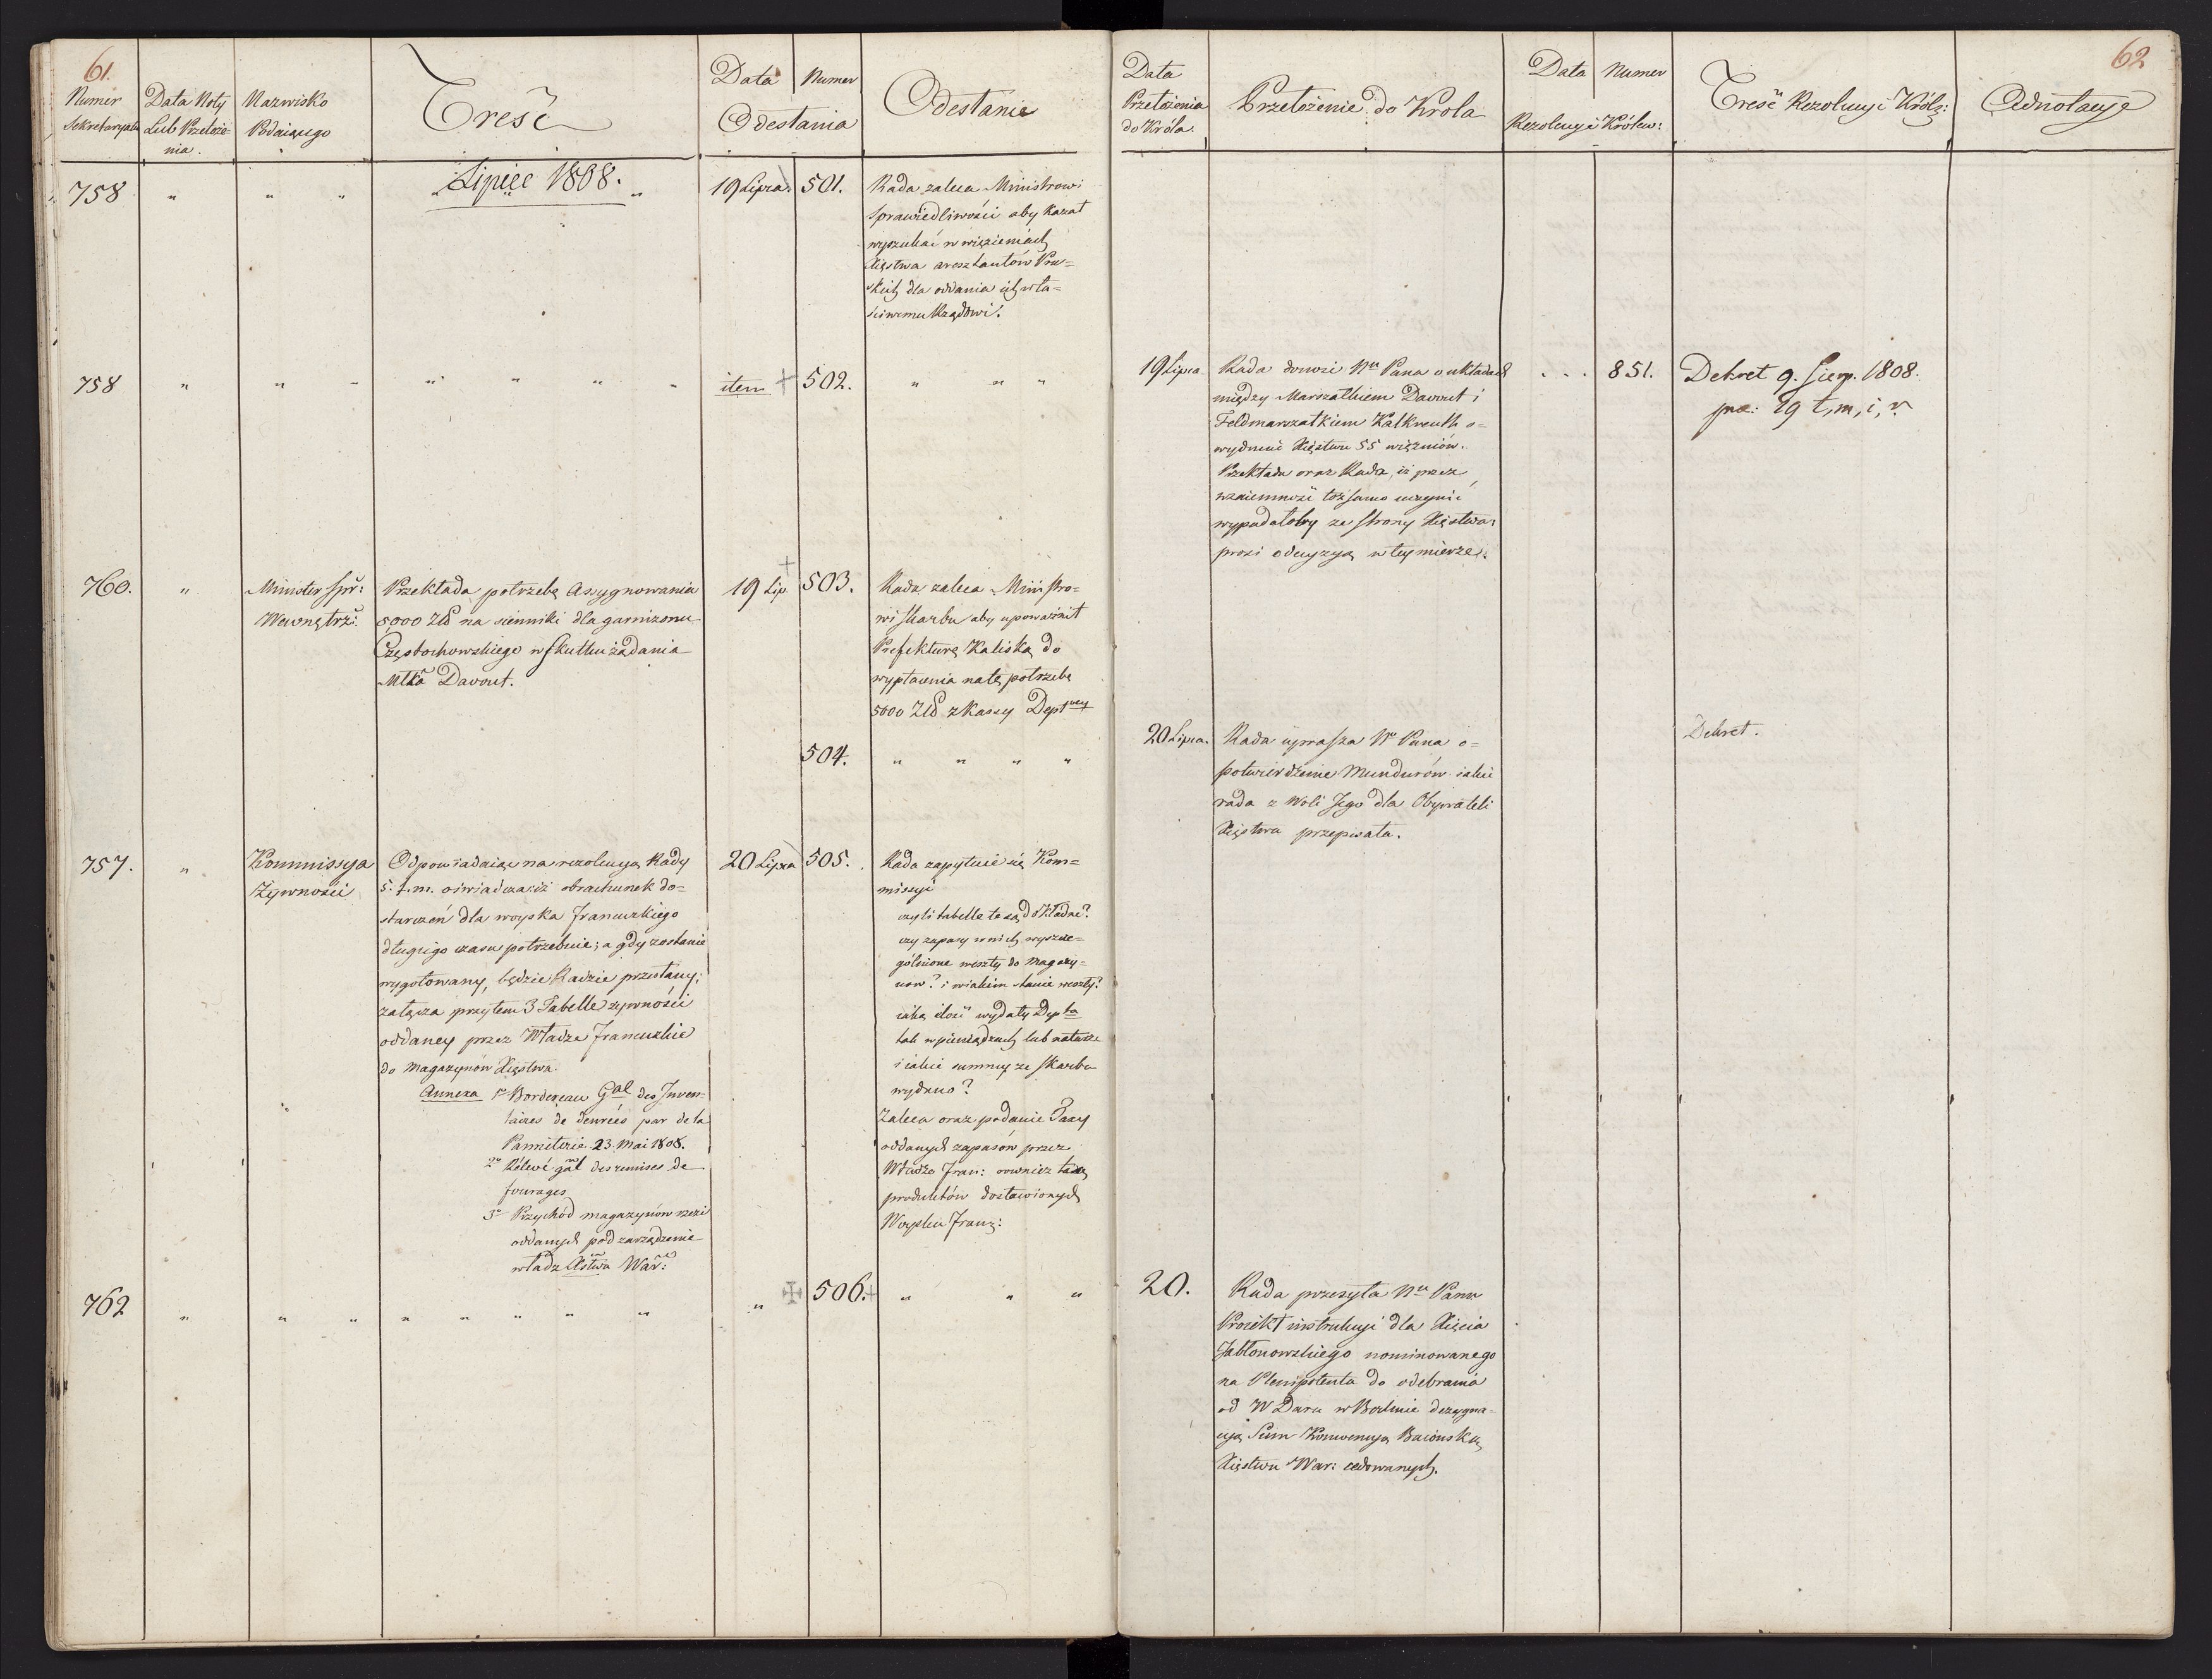 61.
Numer Sekretaryatu
Data Noty Lub Przełoże-nia.
Nazwisko Podaiącego
Treść
Data Numer
Odesłania
Odesłanie
Lipiec 1808.
758 " " " " "
19 Lipca. 501.
Rada zaleca Ministrowi
Sprawiedliwości aby kazał
wyszukać w więzieniach
Xięstwa aresztantów Pru=
skich dla oddania ich wła=
ściwemu Rządowi.
758 " " " " " " "
item 502. " " "
760. "
Minister Spr:
Wewnętrz:
Przekłada potrzebę Assygnowania
5,000 Złł na sienniki dla garnizonu
Częstochowskiego w skutku żądania
Młka Davout.
19 Lip 503.
Rada zaleca Ministro=
wi Skarbu aby upoważnił
Prefekturę Kaliską do
wypłacenia na tę potrzebę
5000 Złł z Kassy Deptwey
504. " " " "
757. "
Kommissya
Żywności
Odpowiadaiąc na rezolucyą Rady
5. t. m. oświadcza iż obrachunek do=
starczeń dla woyska francuzkiego
długiego czasu potrzebuie; a gdy zostanie
wygotowany, będzie Radzie przesłany;
załącza przytem 3 Tabelle żywności
oddaney przez Władze francuzkie
do Magazynów Xięstwa.
Annexa 1o Bordereau Gal des Inven-
taires de denrées par de la
Panneterie 23. Mai 1808.
2o Rélevé gāl des remises de
fourages
3o Przychód magazynów rzezi
oddanych pod zarządzenie
władz Xstwa War:
20 Lipca 505.
Rada zapytuie się Kom=
missyi
czyli tabelle te są dokładne?
czy zapasy w nich wyszcze=
gólnione weszły do Magazy=
nów? i w iakim stanie weszły?
iaką ilość wydały Depta
tak w pieniądzach lub naturze
i iakie summy ze skarbu
wydano?
Zaleca oraz podanie Taxy
oddanych zapasów przez
Władze Fran: rownież taxę
produktów dostawionych
Woysku Franz:
762 " " " " " " " "
" 506. " " "
62
Data Przełożenia do Króla.
Przełożenie do Krola
Data Numer
Rezolucyi Królew:
Treść Rezolucyi Król:
Adnotacye
19 Lipca
Rada donosi Nu Pana o układach
między Marszałkiem Davout i
Feldmarszałkiem Kalkreuth o=
wydanie Xięstwu 55 więźniów.
Przekłada oraz Rada, iż przez
wzaiemność toż samo uczynić
wypadałoby ze strony Xięstwa;
prosi o decyzyą w tey mierze.
. . . 851.
Dekret 9. Sierp. 1808.
20 Lipca.
Rada uprasza Nu Pana o=
potwierdzenie Mundurów iakie
rada z Woli Jego dla Obywateli
Xięstwa przepisała.
Dekret.
20.
Rada przesyła Nu Panu
Proiekt instrukcyi dla Xięcia
Jabłonowskiego nominowanego
na Plenipotenta do odebrania
od W Daru w Berlinie dezygna-
cyą Sum Konwencyą Baiońską
Xięstwu War: cedowanych.